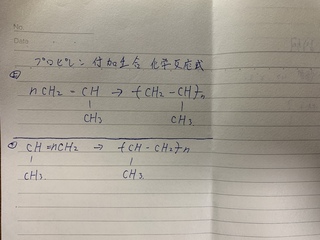 No.
Date
プロピレン 付加重合 化学反応式
nCH2 = CH → {CH2 - CH}n
CH3 CH3
CH =nCH2 → {CH - CH2}n
CH3 CH3